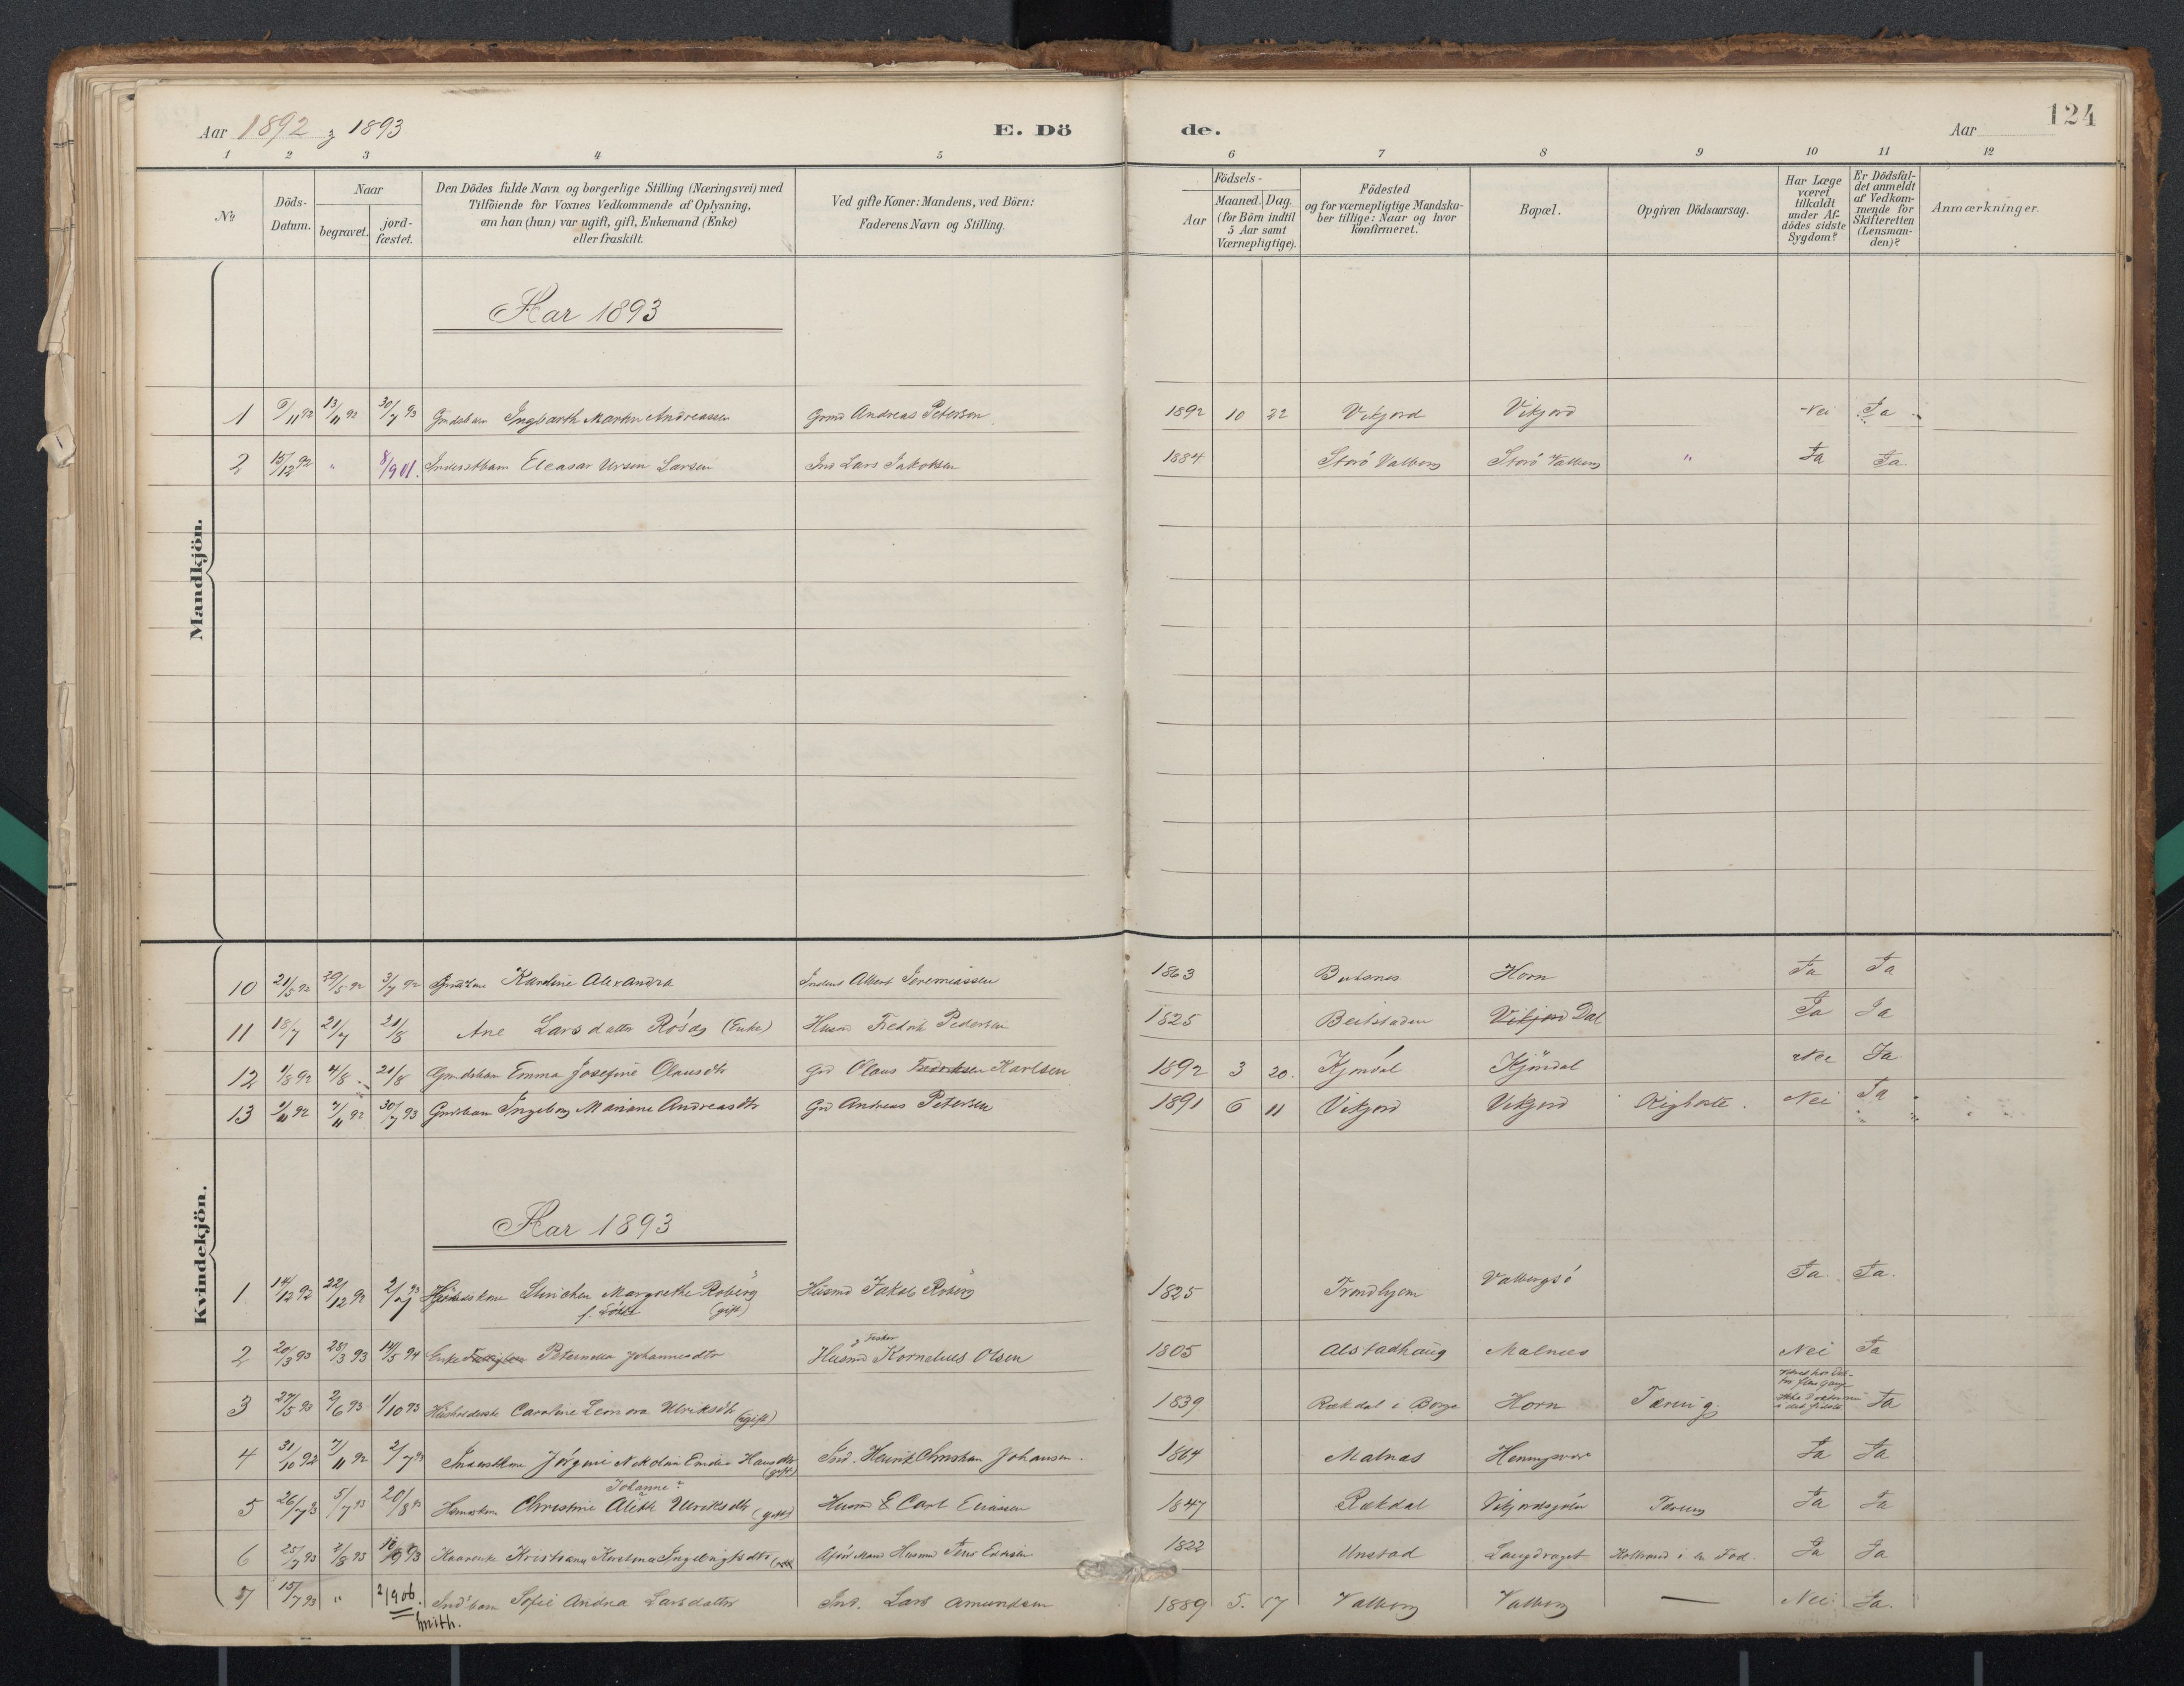 Aar 1892 & 1893 E. Dö de. Aar 124
1 2 3 4 5 6 7 8 9 10 11 12
No
Döds-Datum.
Naar begravet. jord-fæstet.
Den Dödes fulde Navn og borgerlige Stilling (Næringsvei) med
Tilföiende for Voxnes Vedkommende af Oplysning,
om han (hun) var ugift, gift, Enkemand (Enke)
eller fraskilt.
Ved gifte Koner: Mandens, ved Börn:
Faderens Navn og Stilling.
Födsels-
Aar Maaned. Dag.
(for Börn indtil
5 Aar samt
Værnepligtige).
Födested
og for værnepligtige Mandska-
ber tillige: Naar og hvor
konfirmeret.
Bopæl.
Opgiven Dödsaarsag.
Har Læge
været
tilkaldt
under Af-
dödes sidste
Sygdom?
Er Dödsfal-
det anmeldt
af Vedkom-
mende for
Skifteretten
(Lensman-
den)?
Anmærkninger.
Mandkjön.
Aar 1893
1 9/11 92 13/11 92 30/7 93 Ingvarth Martin Andreassen Andreas Petersen 1892 10 22 Vikjord Vikjord Nei Ja
2 15/12 92 " 8/9 01. Eleasar Ursin Larsen Ind Lars Jakobsen 1884 Storö Valberg Storö Valberg " Ja Ja
Kvindekjön.
10 21/5 92 29/5 92 3/7 92 Karoline Alexandra Albert Jeremiassen 1863 Horn Ja Ja
11 18/7 21/7 21/8 Ane Larsdatter (Enke) Husmd Fredrik Pedersen 1825 Beitstaden Vikjord Dal Ja Ja
12 1/8 92 4/8 21/8 Emma Josefine Olausdtr Gd Olaus Fredriksen Karlsen 1892 3 20. Kjöndal Kjöndal Nei Ja
13 1/11 92 7/11 92 30/7 93 Ingeborg Mariane Andreasdtr Gd Andreas Petersen 1891 6 11 Vikjord Vikjord Kighoste. Nei Ja
Aar 1893
1 14/12 92 22/12 92 2/7 93 Margrethe Röberg Husmd Jakob Röberg 1825 Trondhjem Valbergsö Ja. Ja.
(gift)
2 20/3 93 28/3 93 14/5 94 Enke Peternella Johannesdtr Husmd Kornelius Olsen 1805 Alstadhaug Malnes Nei Ja
3 27/5 93 2/6 93 1/10 93 Husholderske Caroline Leonora Ulriksdtr (ugift) 1839 Rækdal i Borge Horn Tæring Ja
4 31/10 92 7/11 92 2/7 93 Jörgine Nikoline Hansdtr (gift) Ind. Henrik Christian Johansen. 1864 Malnæs Henningsvær Ja Ja
Johanne
5 26/7 93 5/7 93 20/8 93 Christine Aleth Ulriksdtr (gift) Husmd E Carl Eliassen 1847 Rækdal Tæring Ja Ja
6 25/7 93 2/8 93 Kaarenke Kristiana Ingebrigtsdtr Husmd Jens 1822 Unstad Langdraget Koldbrand i en Fod. Ja Ja
7 15/7 93 " 2/1906. Ind'barn Sofie Andrea Larsdatter Ind. Lars Amundsen 1889 5. 17 Valberg Valberg — Nei Ja.
Smith.